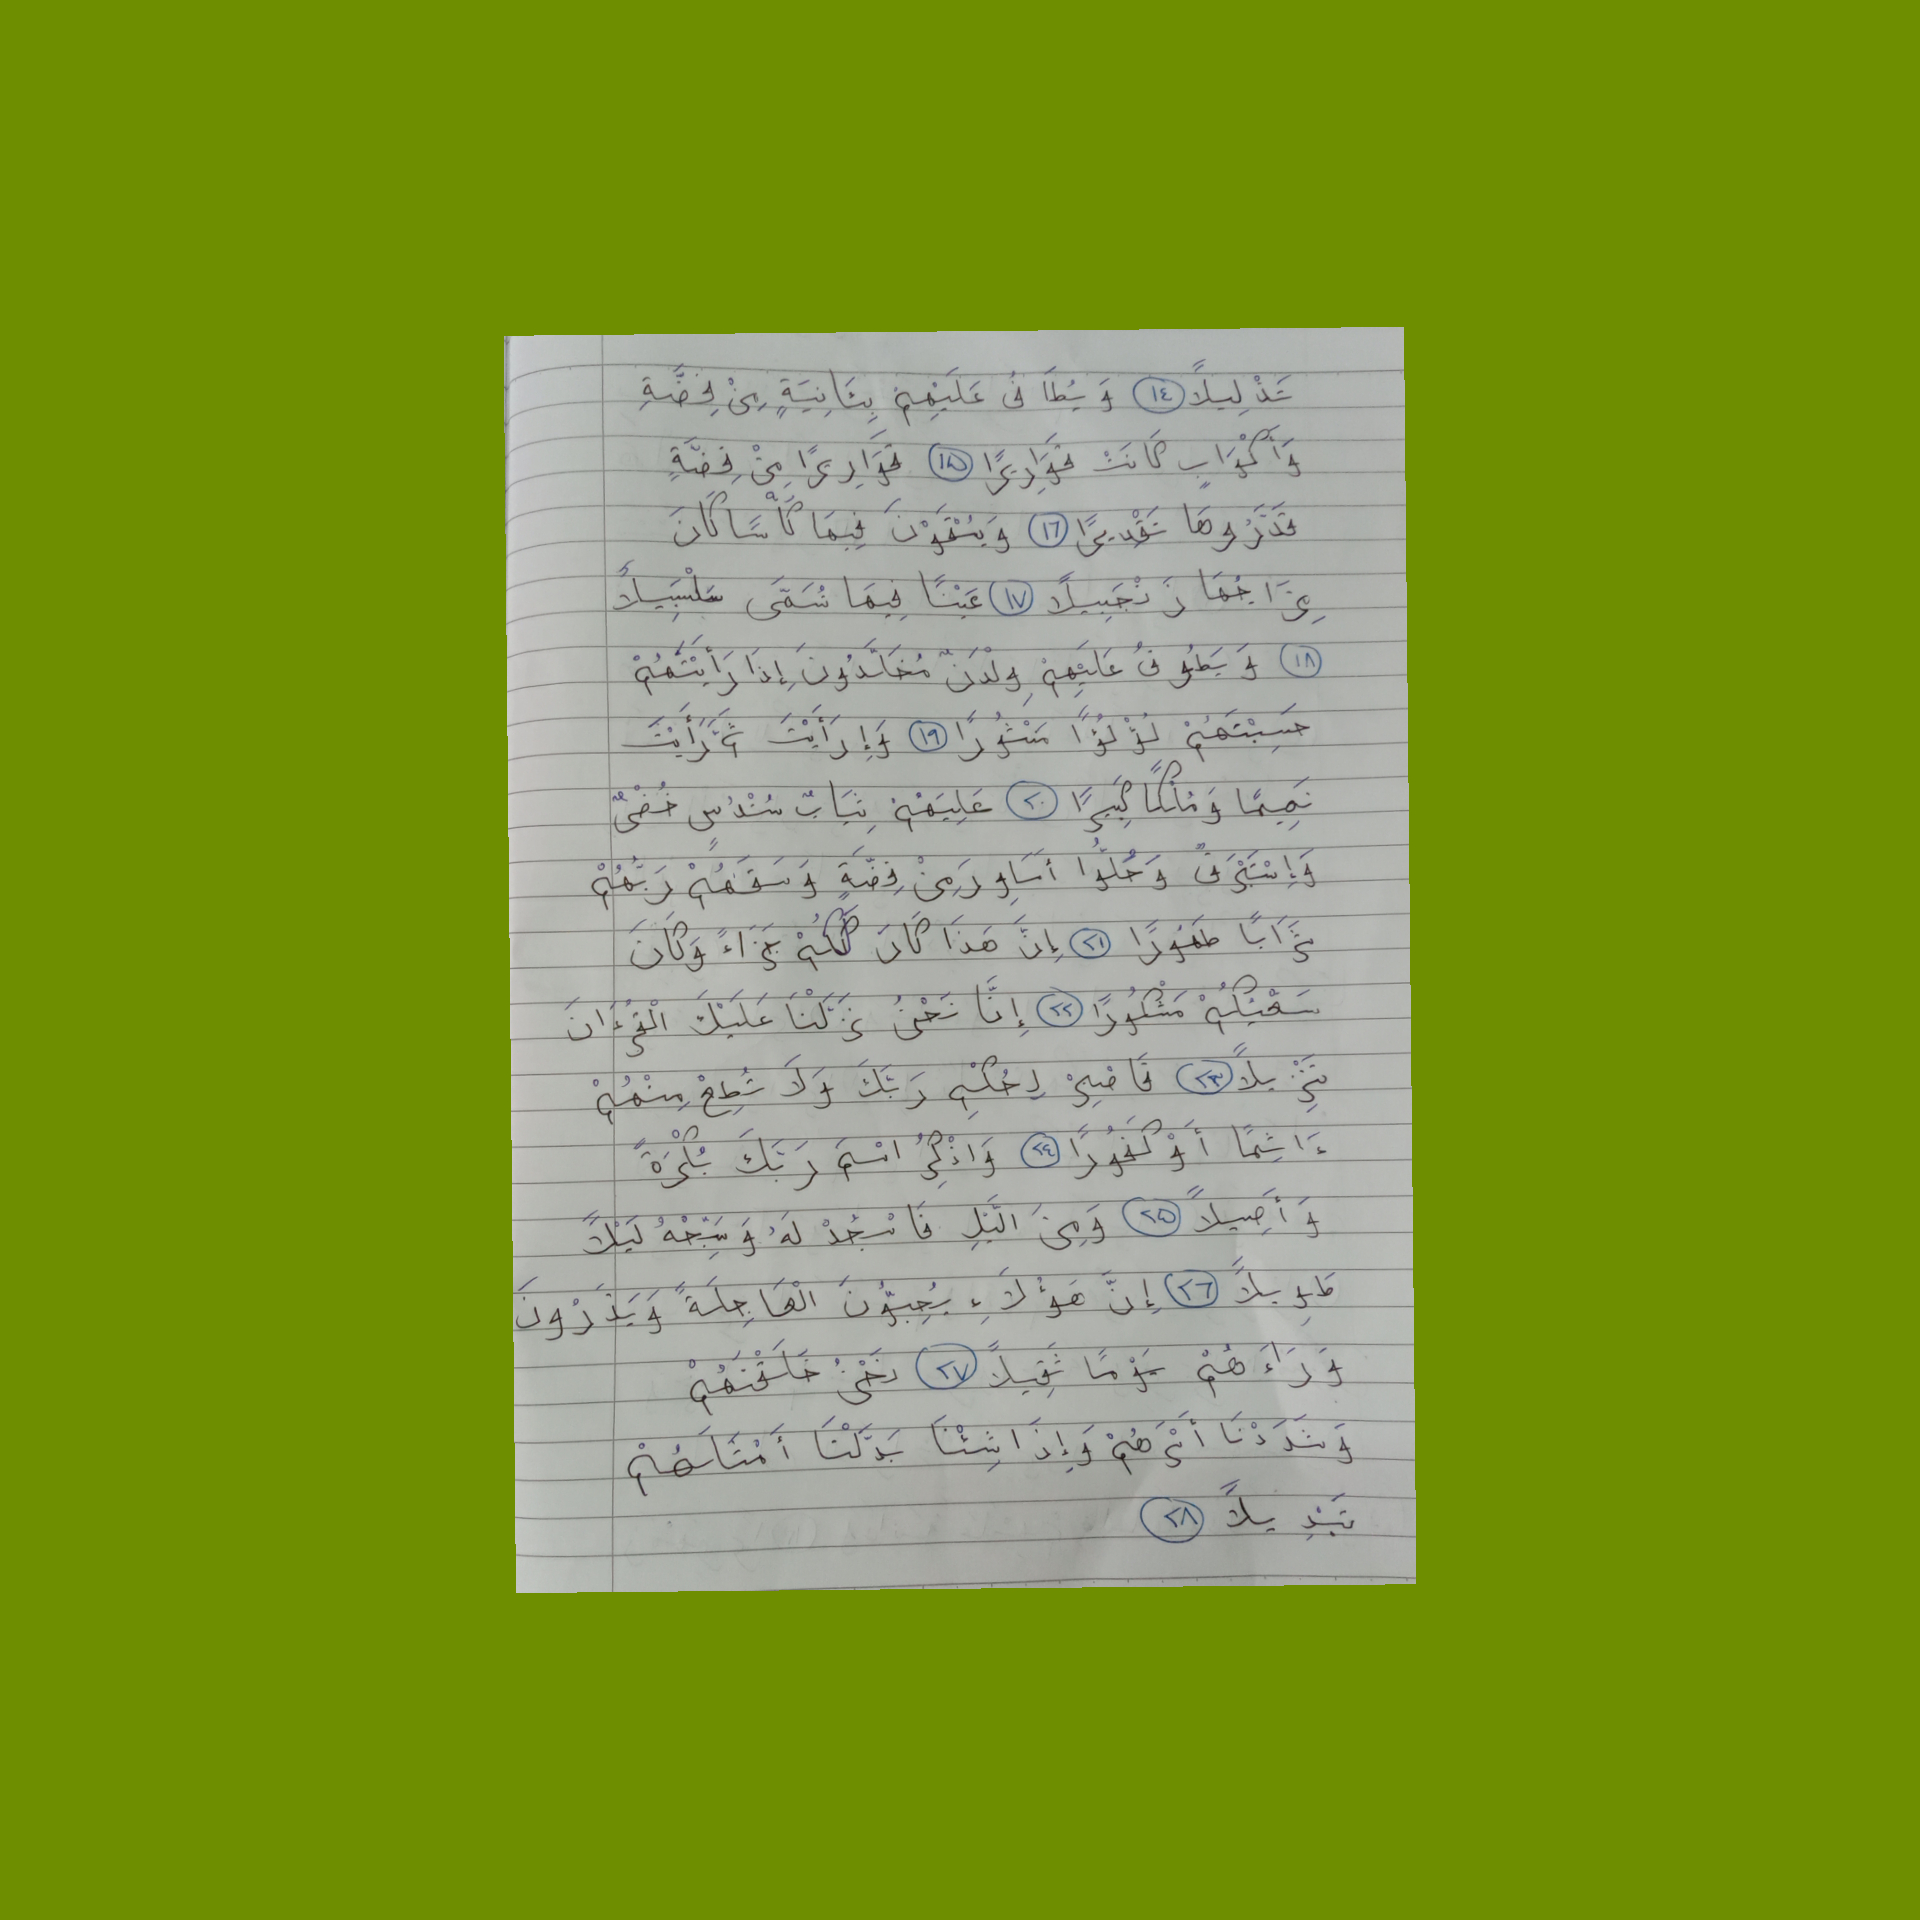 تَذْلِيلًا ١٤ وَيُطَافُ عَلَيْهِمْ بِئَانِيَةٍ مِنْ فِضَّةِ
وَأَكْوَابٍ كَانَتْ قَوَارِيرًا ١٥ قَوَارِيرًا مِنْ فِضَّةِ
قَدَّرُوهَا تَقْدِيرًا ١٦ وَيُسْقَوْنَ فِيهَا كَأْسًا كَانَ
مِزَاجُهَا زَنْجَبِيلًا ١٧ عَيْنًا فِيهَا تُسَمَّى سَلْسَبِيلًا
١٨ وَيَطُوفُ عَلَيْهِمْ وِلْدَنٌ مُخَلَّدُونَ إِذَا رَأَيْتَهُمْ
حَسِبْتَهُمْ لُؤْلُؤًا مَنْثُورًا ١٩ وَإِرَأَيْتَ ثَمَّ رَأَيْتَ
نَعِيمًا وَمُلْكًا كَبِيرًا ٢٠ عَلِيَهُمْ ثِيَابٌ سُنْدُسٍ خُضْرٌ
وَإِسْتَبْرَقٌ وَحُلُّوا أَسَاوِرَ مِنْ فِضَّةٍ وَسَقَهُمْ رَبُّهُمْ
شَرَابًا طَهُورًا ٢١ إِنَّ هَذَا كَانَ لَكُمْ جَزَاءً وَكَانَ
سَعْيُكُمْ مَشْكُورًا ٢٢ إِنَّا نَحْنُ نَزَّلْنَا عَلَيْكَ الْقُرْءَانَ
تَنْزِيلًا ٢٣ فَاصْبِرْ لِحُكْمِ رَبِّكَ وَلَا تُطِعْ مِنْهُمْ
ءَاثِمًا أَوْ كَفُورًا ٢٤ وَاذْكُرُ اسْمَ رَبِّكَ بُكْرَةً
وَأَصِيلًا ٢٥ وَمِنَ الَّيْلِ فَاسْجُدْ لَهُ وَسَبِّحْهُ لَيْلًا
طَوِيلًا ٢٦ إِنَّ هَؤُلَاءِ يُحِبُّونَ الْعَاجِلَةً وَيَذَرُونَ
وَرَاءَهُمْ يَوْمًا ثَقِيلًا ٢٧ نَحْنُ خَلَقْنَهُمْ
وَشَدَدْنَا أَسْرَهُمْ وَإِذَا شِئْنَا بَدَّلْنَا أَمْثَالَهُمْ
تَبْدِيلًا ٢٨